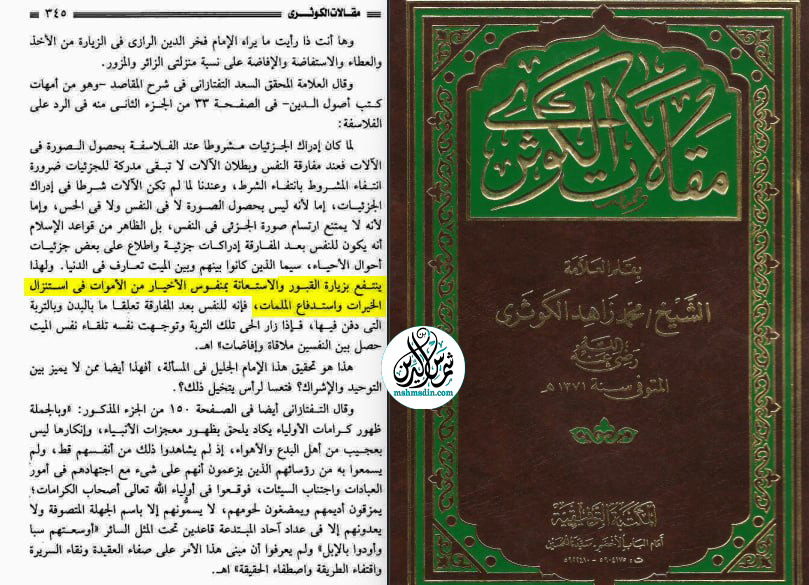 مقالات الكوثرى ٣٤٥
وها أنت ذا رأيت ما يراه الإمام فخر الدين الرازى فى الزيارة من الأخذ
والعطاء والاستفاضة والإفاضة على نسبة منزلتى الزائر والمزور.
وقال العلامة المحقق السعد التفتازانى فى شرح المقاصد -وهو من أمهات
كتب أصول الدين- فى الصفحة ٣٣ من الجزء الثانى منه فى الرد على
الفلاسفة:
لما كان إدراك الجزئيات مشروطا عند الفلاسفة بحصول الصورة فى
الآلات فعند مفارقة النفس وبطلان الآلات لا تبقى مدركة للجزئيات ضرورة
انتفاء المشروط بانتفاء الشرط، وعندنا لما لم تكن الآلات شرطا فى إدراك
الجزئيات، إما لأنه ليس بحصول الصورة لا فى النفس ولا فى الحس، وإما
لأنه لا يمتنع ارتسام صورة الجزئى فى النفس، بل الظاهر من قواعد الإسلام
أنه يكون للنفس بعد المفارقة إدراكات جزئية واطلاع على بعض جزئيات
أحوال الأحياء، سيما الذين كانوا بينهم وبين الميت تعارف فى الدنيا. ولهذا
ينتفع بزيارة القبور والاستعانة بنفوس الأخيار من الأموات فى استنزال
الخيرات واستدفاع الملمات، فإنه للنفس بعد المفارقة تعلقا ما بالبدن وبالتربة
التى دفن فيها، فإذا زار الحى تلك التربة وتوجهت نفسه تلقاء نفس الميت
حصل بين النفسين ملاقاة وإفاضات» اهـ.
هذا هو تحقيق هذا الإمام الجليل فى المسألة، أفهذا أيضا ممن لا يميز بين
التوحيد والإشراك؟ فتعسا لرأس يتخيل ذلك؟.
وقال التفتازانى أيضا فى الصفحة ١٥٠ من الجزء المذكور: «وبالجملة
ظهور كرامات الأولياء يكاد يلحق بظهور معجزات الأنبياء، وإنكارها ليس
بعجيب من أهل البدع والأهواء، إذ لم يشاهدوا ذلك من أنفسهم قط، ولم
يسمعوا به من رؤسائهم الذين يزعمون أنهم على شىء مع اجتهادهم فى أمور
العبادات واجتناب السيئات، فوقعوا فى أولياء الله تعالى أصحاب الكرامات؛
يمزقون أديمهم ويمضغون لحومهم، لا يسمونهم إلا باسم الجهلة المتصوفة ولا
يعدونهم إلا فى عداد آحاد المبتدعة قاعدين تحت المثل السائر «أوسعتهم سبا
وأودوا بالإبل» ولم يعرفوا أن مبنى هذا الأمر على صفاء العقيدة ونقاء السريرة
واقتفاء الطريقة واصطفاء الحقيقة» اهـ.
شمس الدين
mahmadin.com
مقالات الكوثرى
بقلم العلامة
الشيخ/ محمد زاهد الكوثرى
رضى الله عنه
المتوفى سنة ١٣٧١ هـ
المكتبة التوفيقية
أمام الباب الأخضر - سيدنا الحسين